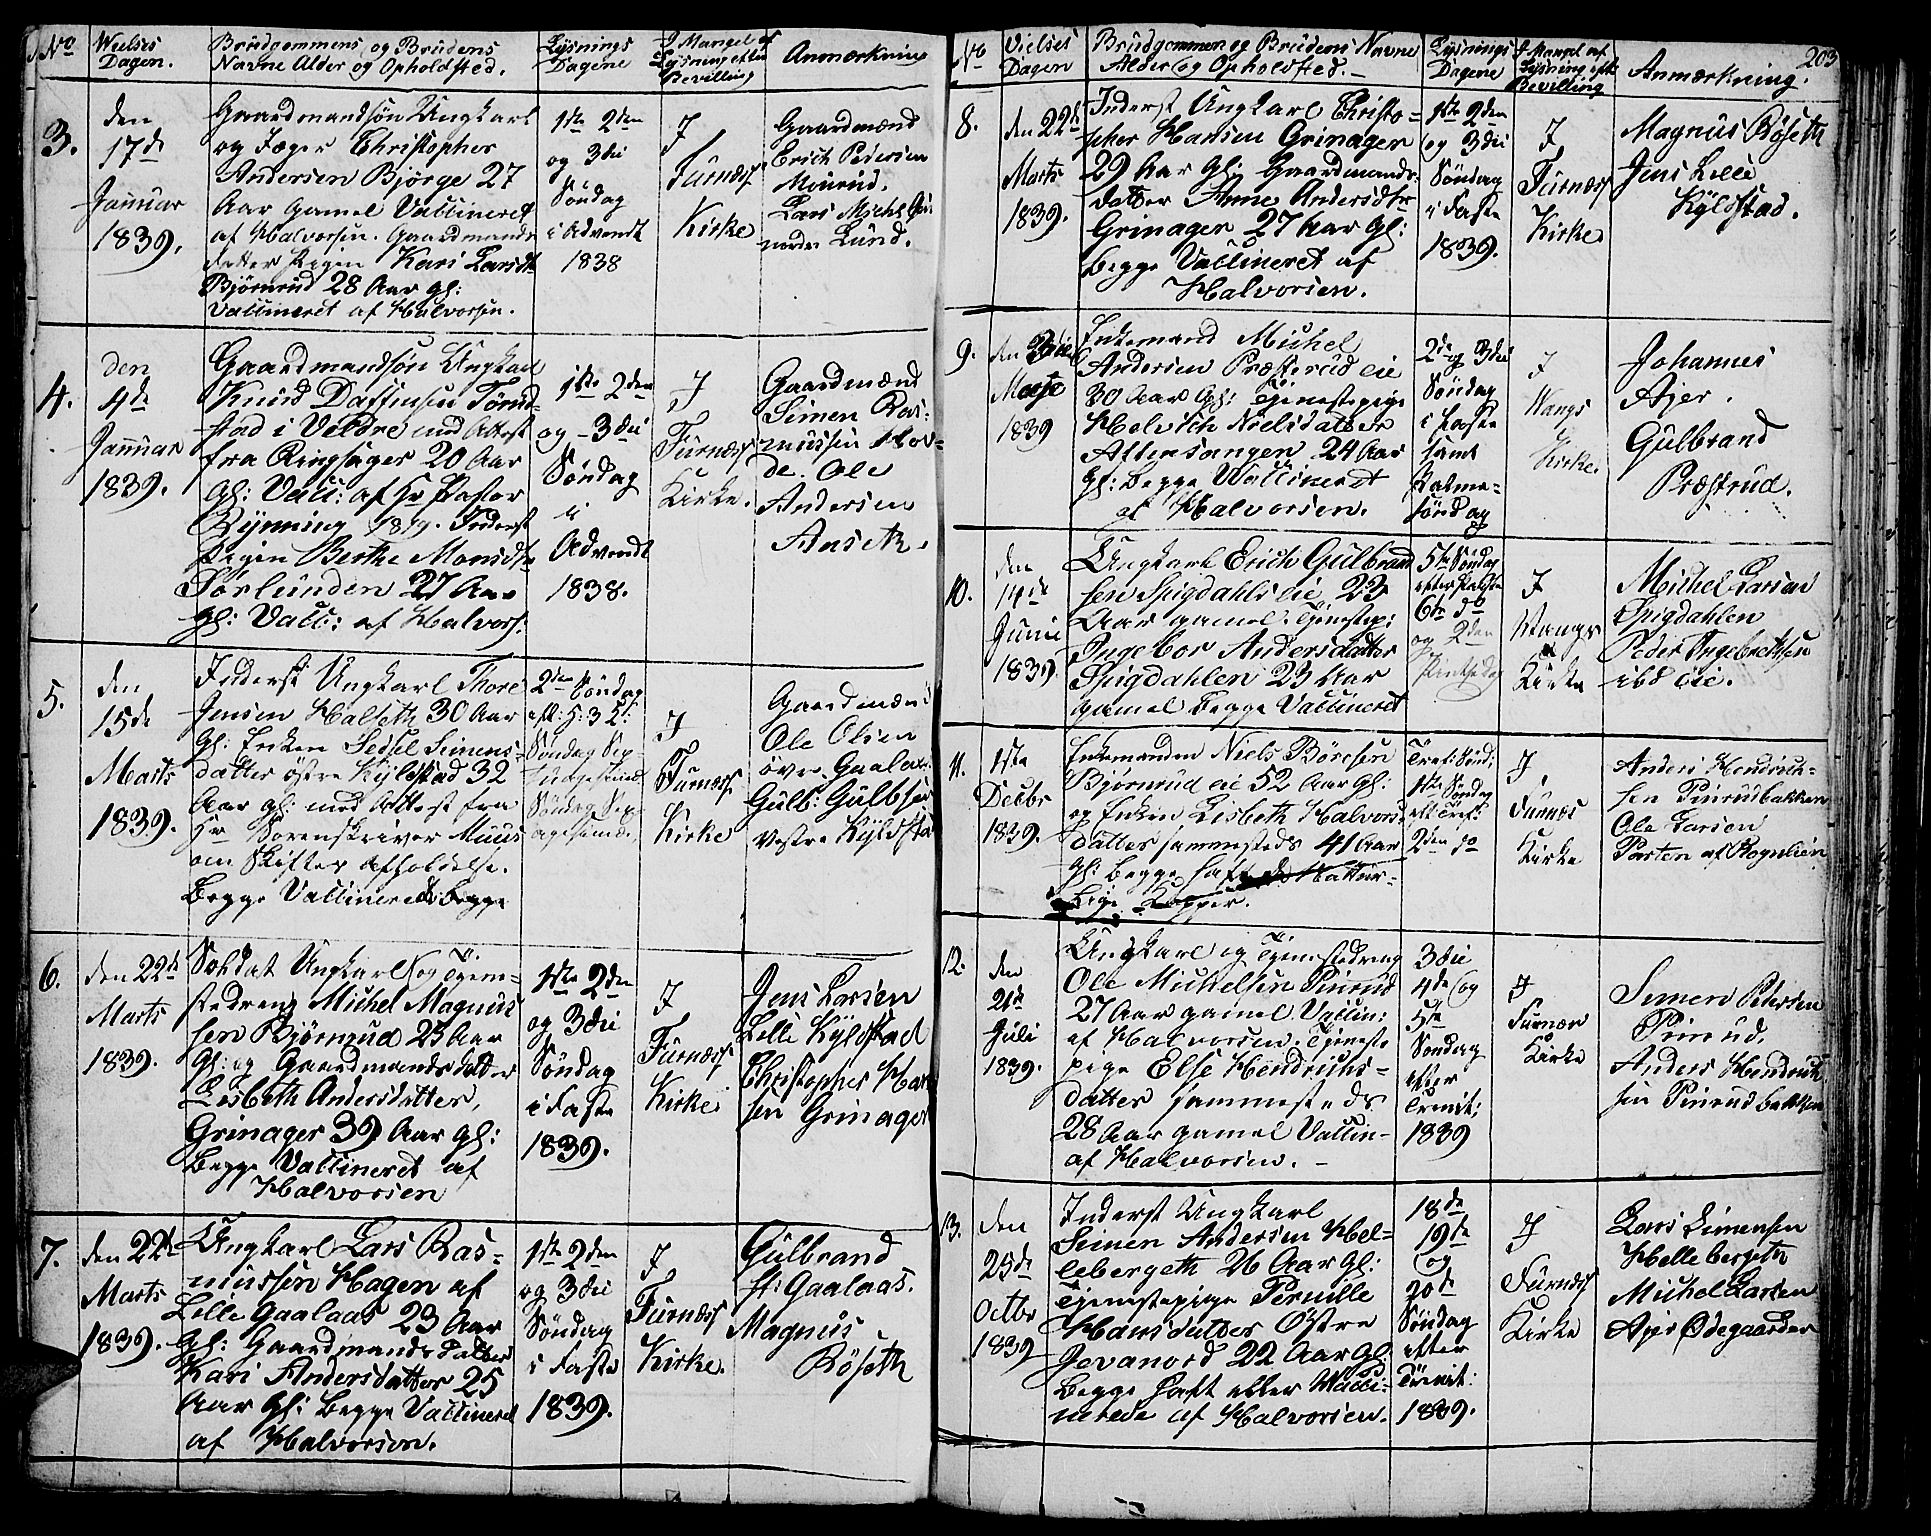 No
Vielses
Dagen.
Brudgommens og Brudens
Navne Alder og Opholdsted.
Lysnings
Dagene
I Mangel af
Lysning efter
Bevilling
Anmærkning
3.
den
17de
Januar
1839.
Gaardmandsøn Ungkarl
og Jæger Christopher
Andersen Bjørge 27
Aar gamel Vaccineret
af Halvorsen. Gaardmands
datter Pigen Kari Larsdtr
Bjørnrud 28 Aar gl:
Vaccineret af Halvorsen.
1ste 2den
og 3die
Søndag
i Advendt
1838
I
Furnæss
Kirke
Gaardmænd
Erich Pedersen
Mourud.
Lars Michl
Lund.
4.
den
4de
Januar
1839.
Gaardmandsøn Ungkarl
Knud Daffinsen Tørud-
stad i Veldre med Attest
fra Ringsager 20 Aar
gl: Vacc: af Hr Pastor
Rynning 1819. Inderst
Pigen Berthe Monsdtr
Sørlunden 27 Aar
gl: Vacc: af Halvors:
1ste 2den
og 3die
Søndag
i
Advendt
1838.
I
Furnæss
Kirke.
Gaardmænd
Simen Ras-
mussen Hov-
de. Ole
Andersen
Anseth.
5.
den
15de
Marts
1839.
Inderst Ungkarl Thore
Jensen Halseth 30 Aar
gl: Enken Sedsel Simens-
datter østre Kylstad 32
Aar gl: med Attest fra
Hr Sorenskriver Muus
om Skifter afholdelse.
Begge Vaccinerede
2den Søndag
eft: H: 3 K:
Søndag Sep-
tuagesima
Søndag Sex-
agesima.
I
Furnæss
Kirke
Gaardmænd
Ole Olsen
øvre Gaalaas
Gulb: Gulbsen
Vestre Kylstad
6.
den 22de
Marts
1839.
Soldat Ungkarl og Tjene-
stedreng Michel Magnus
sen Bjørnrud 25 Aar
gl: og Gaardmandsdatter
Lisbeth Andersdatter,
Grinager 39 Aar gl:
Begge Vaccineret af
Halvorsen
1ste 2den
og 3die
Søndag
i Faste
1839.
I
Furnæss
Kirke
Jens Larsen
Lille Kylstad
Christopher Han
sen Grinager
7.
den 22de
Marts
1839.
Ungkarl Lars Ras-
mussen Hagen af
Lille Gaalaas 23 Aar
gl: Gaardmandsdatter
Kari Andersdatter 25
Aar gl: Begge Vaccineret
af Halvorsen.
1ste 2den
og 3die
Søndag
i Faste
1839.
I
Furnæss
Kirke.
Gulbrand
st: Gaalaas.
Magnus
Røseth
203
No
Vielses
Dagen
Brudgommen og Brudens Navne
Alder og Opholdsted.
Lysnings
Dagene
I Mangel af
Lysning eft
Bevilling
Anmærkning.
8.
den 22de
Marts
1839.
Inderst Ungkarl Christo-
pher Hansen Grinager
29 Aar gl: Gaardmands-
datter Anne Andersdtr
Grinager 27 Aar gl:
Begge Vaccineret af
Halvorsen.
1ste 2den
og 3die
Søndag
i Faste
1839.
I
Furnæss
Kirke.
Magnus Røseth
Jens Lille
Kylstad.
9.
den
1839
Enkemand Michel
Andersen Præsterud eie
30 Aar gl: Tjenestepige
Helvich Nielsdatter
Attensangen 24 Aar
gl: Begge Vaccineret
af Halvorsen.
2de og 3die
Søndag
i Faste
samt
Palme-
søndag
I
Wangs
Kirke.
Johannes
Ajer.
Gulbrand
Præstrud.
10.
den
14de
Junie
1839.
Ungkarl Erich Gulbrand
sen Spigdahls eie 22
Aar gamel. Tjenestep:
Ingebor Andersdatter
Spigdahlen 23 Aar
gamel Begge Vaccineret
5te Søndag
efter Paaske
6te do
og 2den
Pintsedag
I
Wangs
Kirke
Michel Larsen
Spigdahlen
Peder Ingebrethsen
ibd eie.
11.
1ste
Decbr
1839.
Enkemanden Niels Børesen
Bjørnrud eie 52 Aar gl:
og Enken Lisbeth Halvors
datter sammesteds 41 Aar
gl: Begge haft de Natur-
lige Kopper.
Tref: Sønd:
1ste Søndag
eft Tref:
2den do
I
Furnæs
Kirke
Anders Hendrich-
sen Pinrudbakken
Ole Larsen
Parten af Rognlien
12.
den
21de
Juli
1839.
Ungkarl og Tjenestedreng
Ole Michelsen Pinrud
27 Aar gamel Vaccin:
af Halvorsen. Tjeneste
pige Else Hendrichs-
datter sammesteds
28 Aar gamel Vaccin-
af Halvorsen.
3die
4de og
5te
Søndag
efter
Trenit:
1839
I
Furnæs
Kirke
Simen Pedersen
Pinrud.
Anders Hendrich
sen Pinrudbakken
13.
den
25de
Octbr
1839
Inderst Ungkarl
Simen Andersen Hel-
lebergeth 26 Aar gl:
Tjenestepige Pernille
Hansdatter Østre
Jevanord 22 Aar gl
Begge haft eller Vacci-
nerede af Halvorsen.
18de
19de
og
20de
Søndag
efter
Trenit:
1839.
I
Furnæss
Kirke
Lars Simensen
Hellebergeth
Michel Larsen
Ajer Ødegaarden